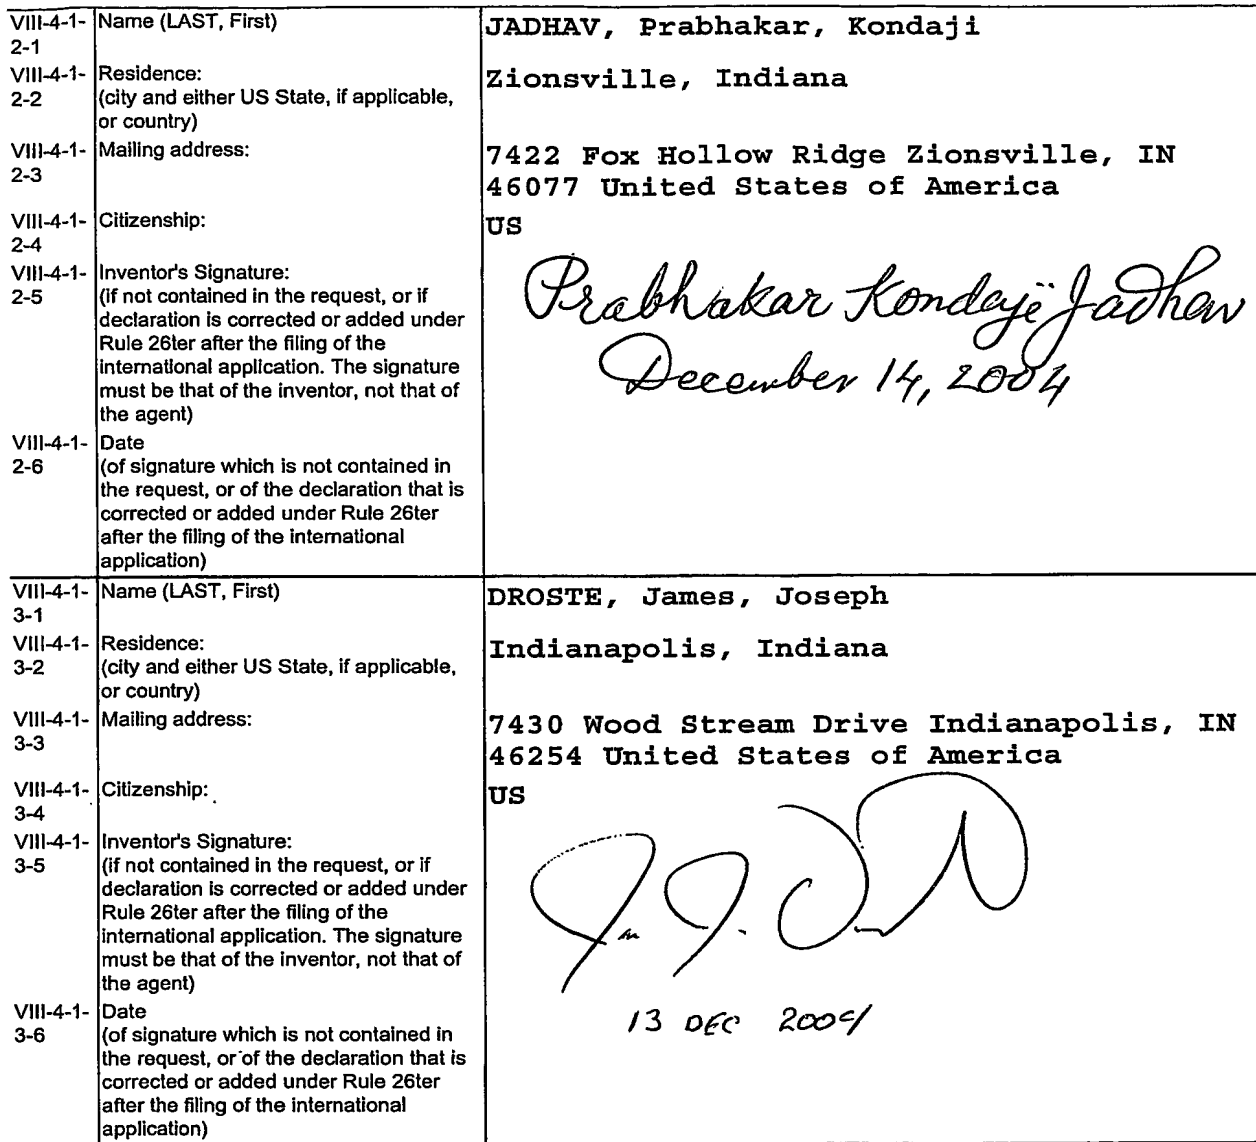 VIII-4-1- Name (LAST, First) JADHAV, Prabhakar, Kondaji
2-1
VIII-4-1- Residence: Zionsville, Indiana
2-2 (city and either US State, if applicable,
or country)
VIII-4-1- Mailing address: 7422 Fox Hollow Ridge Zionsville, IN
2-3 46077 United States of America
VIII-4-1- Citizenship: US
2-4
VIII-4-1- Inventor's Signature: Prabhakar Kondaji Jadhav
2-5 (if not contained in the request, or if
declaration is corrected or added under December 14, 2004
Rule 26ter after the filing of the
international application. The signature
must be that of the inventor, not that of
the agent)
VIII-4-1- Date
2-6 (of signature which is not contained in
the request, or of the declaration that is
corrected or added under Rule 26ter
after the filing of the international
application)
VIII-4-1- Name (LAST, First) DROSTE, James, Joseph
3-1
VIII-4-1- Residence: Indianapolis, Indiana
3-2 (city and either US State, if applicable,
or country)
VIII-4-1- Mailing address: 7430 Wood Stream Drive Indianapolis, IN
3-3 46254 United States of America
VIII-4-1- Citizenship: US
3-4
VIII-4-1- Inventor's Signature:
3-5 (if not contained in the request, or if
declaration is corrected or added under
Rule 26ter after the filing of the
international application. The signature
must be that of the inventor, not that of
the agent)
VIII-4-1- Date 13 DEC 2004
3-6 (of signature which is not contained in
the request, or of the declaration that is
corrected or added under Rule 26ter
after the filing of the international
application)